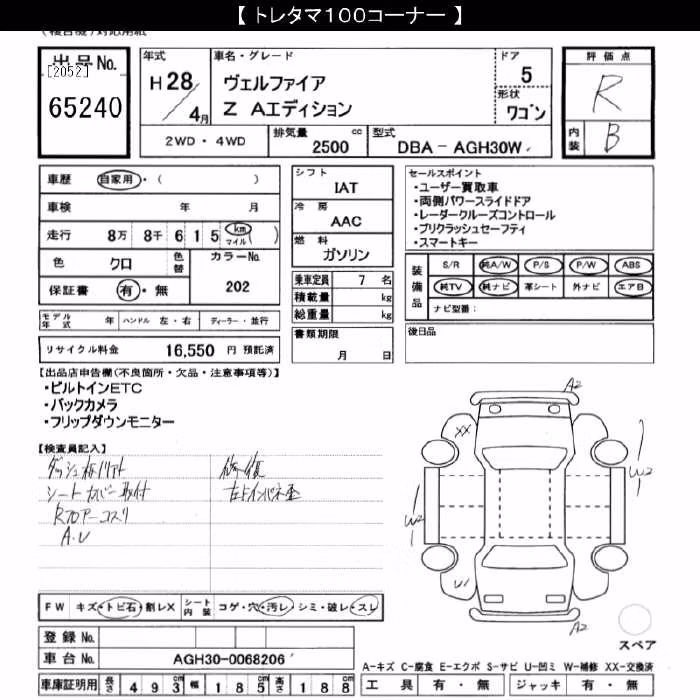 【 トレタマ100コーナー 】
(複合機)対応用紙
出品No.
[2052]
65240
年式
H 28/4月
車名・グレード
ヴェルファイア
Z Aエディション
ドア
5
形状
ワゴン
評価点
R
内装
B
2WD・4WD
排気量
2500 cc
型式
DBA－AGH30W
車歴 自家用・( )
車検 年 月
走行 8万 8千 6 1 5 ( km マイル )
色 クロ
色替
カラーNo.
202
保証書 有・無
モデル年式 年 ハンドル 左・右 ディーラー・並行
リサイクル料金 16,550 円 預託済
シフト
IAT
冷房
AAC
燃料
ガソリン
乗車定員 7 名
積載量 kg
総重量 kg
書類期限
月 日
セールスポイント
・ユーザー買取車
・両側パワースライドドア
・レーダークルーズコントロール
・プリクラッシュセーフティ
・スマートキー
装備品
S/R 純A/W P/S P/W ABS
純TV 純ナビ 革シート 外ナビ エアB
ナビ型番:
後日品
【出品店申告欄(不良箇所・欠品・注意事項等)】
・ビルトインETC
・バックカメラ
・フリップダウンモニター
【検査員記入】
シートカバー取付
Rフロアーコスリ
A.U
修復
A2
XX
W2
W2
U1
A2
スペア
FW キズ・トビ石・割レX
シート内装 コゲ・穴・汚レ・シミ・破レ・スレ
登録No.
車台No. AGH30-0068206
車庫証明用 長さ 493cm 幅 185cm 高さ 188cm
A-キズ C-腐食 E-エクボ S-サビ U-凹ミ W-補修 XX-交換済
工具 有・無 ジャッキ 有・無